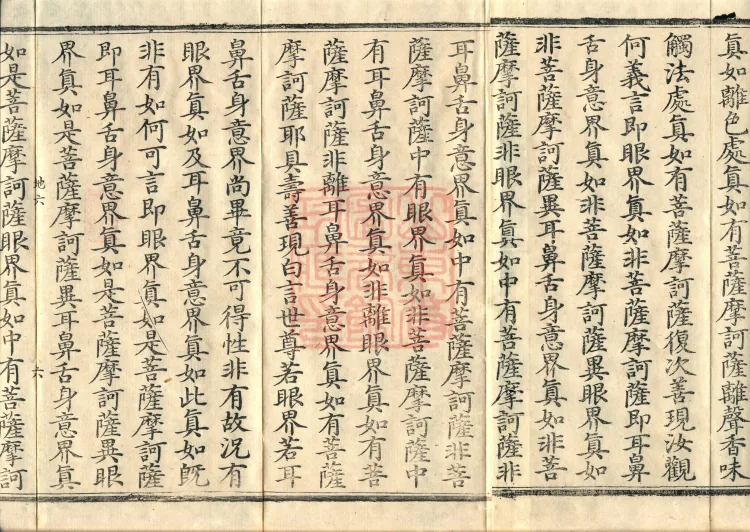 眞如離色處眞如有菩薩摩訶薩離聲香味
觸法處眞如有菩薩摩訶薩復次善現汝觀
何義言即眼界眞如非菩薩摩訶薩即耳鼻
舌身意界眞如非菩薩摩訶薩異眼界眞如
非菩薩摩訶薩異耳鼻舌身意界眞如非菩
薩摩訶薩非眼界眞如中有菩薩摩訶薩非
耳鼻舌身意界眞如中有菩薩摩訶薩非菩
薩摩訶薩中有眼界眞如非菩薩摩訶薩中
有耳鼻舌身意界眞如非離眼界眞如有菩
薩摩訶薩非離耳鼻舌身意界眞如有菩薩
摩訶薩耶具壽善現白言世尊若眼界若耳
鼻舌身意界尚畢竟不可得性非有故況有
眼界眞如及耳鼻舌身意界眞如此眞如旣
非有如何可言即眼界眞如是菩薩摩訶薩
即耳鼻舌身意界眞如是菩薩摩訶薩異眼
界眞如是菩薩摩訶薩異耳鼻舌身意界眞
地六 六
如是菩薩摩訶薩眼界眞如中有菩薩摩訶